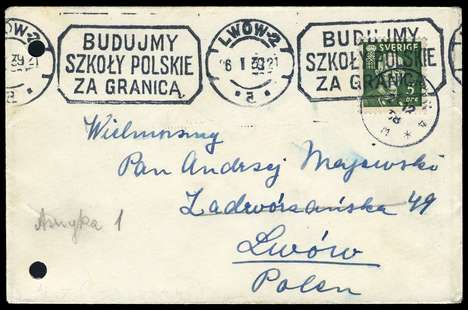 LWÓW-2
39 21
BUDUJMY
SZKOŁY POLSKIE
ZA GRANICĄ
LWÓW-2
6 I 39 21
BUDUJMY
SZKOŁY POLSKIE
ZA GRANICĄ
SVERIGE
5
ÖRE
Wielmożny
Pan Andrzej Majewski
Zadwórzańska 49
Lwów
Polen
Asnyka 1